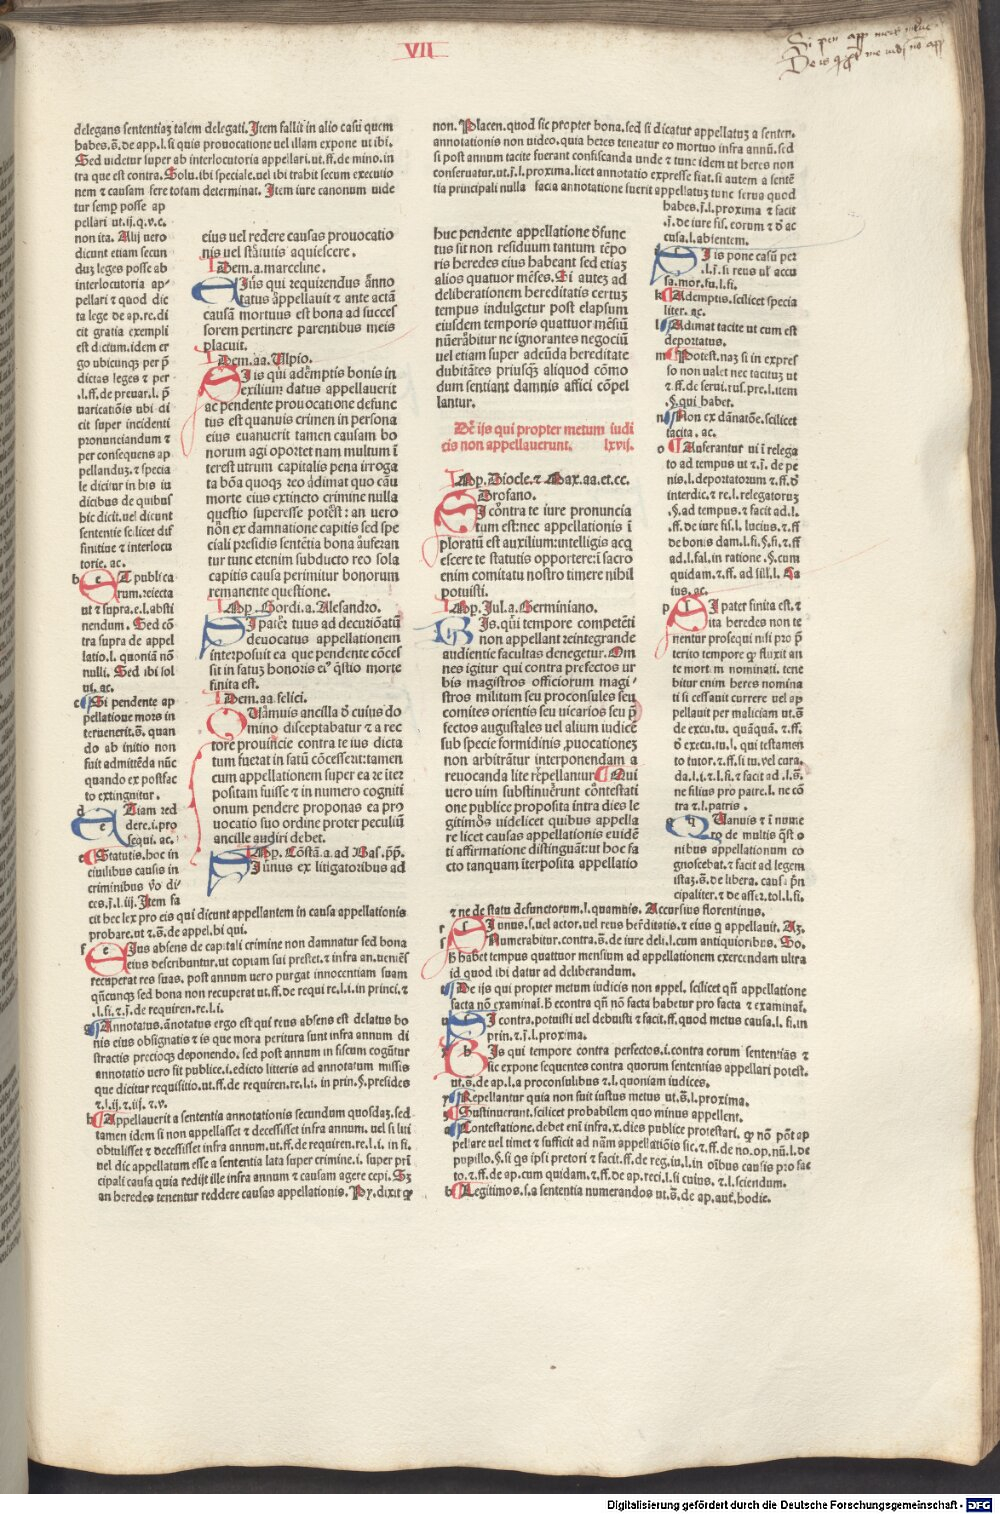 VII
delegans sententiaꝫ talem delegati. Item fallit in alio casu quem
habes.s̄.de app.l.si quis prouocatione vel illam expone ut ibi.
Sed uidetur super ab interlocutoria appellari.ut.ff.de mino.in
tra que est contra. Solu.ibi speciale.uel ibi trahit secum executio
nem ⁊ causam fere totam determinat. Item iure canonum uide
tur semꝑ posse ap
pellari ut.ij.q.v.c.
non ita. Alij uero
dicunt etiam secun
duꝫ leges posse ab
interlocutoria ap/
pellari ⁊ quod dic
ta lege de ap.re.di
cit gratia exempli
est dictum.idem er
go ubicunqꝫ per p̄
dictas leges ⁊ per
.l.ff.de preuar.l. p̄
uaricatiōis ubi di
cit super incidenti
pronunciandum ⁊
per consequens ap
pellanduꝫ.⁊ specia
le dicitur in his iu
dicibus de quibus
hic dicit.uel dicunt
sententie scilicet dif
finitiue ⁊ interlocu
torie. ac.
b e T publica
rum.reiecta
ut ⁊ supra.e.l.absti
nendum. Sed cō
tra supra de appel
latio.l. quoniā nō
nulli. Sed ibi sol
ui. ac.
c Si pendente ap
pellatione mors in
teruenerit.s̄. quan
do ab initio non
fuit admittēda nūc
quando ex postfac
to extinguitur.
d e Tiam red
dere.i.pro
sequi. ac.
e Statutis.hoc in
ciuilibus causis in
criminibus v̄o di/
ces.j̄.l.iij. Item fa
cit hec lex pro eis qui dicunt appellantem in causa appellationis
probare.ut ⁊.s̄.de appel.hi qui.
f e Ius absens de capitali crimine non damnatur sed bona
eius describuntur.ut copiam sui prestet.⁊ infra an.ueniēs
recuperat res suas. post annum uero purgat innocentiam suam
qn̄cunqꝫ sed bona non recuperat ut.ff.de requi re.l.i.in princi.⁊
.l.fi.⁊.j̄.de requiren.re.l.i.
g Annotatus.ānotatus ergo est qui reus absens est delatus bo
nis eius obsignatis ⁊ is que mora peritura sunt infra annum di
stractis precioqꝫ deponendo. sed post annum in fiscum cogūtur
annotatio uero fit publice.i.edicto litteris ad annotatum missis
que dicitur requisitio.ut.ff.de requiren.re.l.i. in prin.§.presides
⁊.l.ij.⁊.iij.⁊.v.
h Appellauerit a sententia annotationis secundum quosdaꝫ.sed
tamen idem si non appellasset ⁊ decessisset infra annum. uel si liti
obtulisset ⁊ decessisset infra annum.ut.ff.de requiren.re.l.i. in fi.
uel dic appellatum esse a sententia lata super crimine.i. super prī
cipali causa quia redijt ille infra annum ⁊ causam agere cepi. Sꝫ
an heredes tenentur reddere causas appellationis. Py.dixit ꝙ
eius uel redere causas prouocatio
nis uel statutis aquiescere.
Idem.a.marceline.
Ius qui requirendus anno
tatus appellauit ⁊ ante actā
causā mortuus est bona ad succes
sorem pertinere parentibus meis
placuit.
Idem.aa.Ulpio.
Is qui ademptis bonis in
exilium datus appellauerit
ac pendente prouocatione defunc
tus est quanuis crimen in persona
eius euanuerit tamen causam bo
norum agi oportet nam multum ī
terest utrum capitalis pena irroga
ta bōa quoqꝫ reo adimat quo cāu
morte eius extincto crimine nulla
questio superesse potest: an uero
nōn ex damnatione capitis sed spe
ciali presidis sentētia bona auferan
tur tunc etenim subducto reo sola
capitis causa perimitur bonorum
remanente questione.
Imp. Gordi.a. Alesandro.
I pater tuus ad decurioātū
deuocatus appellationem
interposuit ea que pendente cōces
sit in fatuꝫ honoris ei⁹ q̄stio morte
finita est.
Idem.aa.felici.
Uāmuis ancilla d̄ cuius do
mino disceptabatur ⁊ a rec
tore prouincie contra te ius dicta
tum fuerat in fatū cōcesserit:tamen
cum appellationem super ea re iter
positam fuisse ⁊ in numero cogniti
onum pendere proponas ea pro
uocatio suo ordine proter peculiū
ancille audiri debet.
Imp. Cōstā.a.ad Bas.p̄p.
I unus ex litigatoribus ad
non. Placen.quod sic propter bona.sed si dicatur appellatuꝫ a senten.
annotationis non uideo.quia heres teneatur eo mortuo infra annū.sed
si post annum tacite fuerant confiscanda unde ⁊ tunc idem ut heres non
conseruatur.ut.j̄.l.proxima.licet annotatio expresse fiat.si autem a sentē
tia principali nulla facta annotatione fuerit appellatuꝫ tunc serua quod
habes.j̄.l.proxima ⁊ facit
.j̄.de iure fis. eorum ⁊ d̄ ac
cusa.l.absentem.
huc pendente appellatione d̄func
tus sit non residuum tantum tēpo
ris heredes eius habeant sed etiaꝫ
alios quatuor mēses. Si auteꝫ ad
deliberationem hereditatis certuꝫ
tempus indulgetur post elapsum
eiusdem temporis quattuor mēsiū
nūerābitur ne ignorantes negociū
uel etiam super adeūda hereditate
dubitātes priusqꝫ aliquod cōmo
dum sentiant damnis affici cōpel
lantur.
De ijs qui propter metum iudi
cis non appellauerunt. lxvij.
Imp. Diocle.⁊ Max.aa.et.cc.
Orofano.
I cōntra te iure pronuncia
tum est:nec appellationis ī
ploratū est auxilium:intelligis acq
escere te statutis oportere:ī sacro
enim comitatu nostro timere nihil
potuisti.
Imp. Jul.a. Germiniano.
Is.qūi tempore competēti
non appellant reintegrande
audientie facultas denegetur. Om
nes igitur qui contra prefectos ur
bis magistros officiorum magi/
stros militum seu proconsules seu
comites orientis seu uicarios seu p̄
fectos augustales uel alium iudicē
sub specie formidinis ꝓuocationeꝫ
non arbitrātur interponendam a
reuocanda lite repellantur Qui
uero uim substinuerunt contestati
one publice proposita intra dies le
gitimos uidelicet quibus appella
re licet causas appellationis euidē
ti affirmatione distinguāt:ut hoc fa
cto tanquam iterposita appellatio
i Is pone casū per
.l.j̄.si reus ul' accu
sa.mor.fu.l.fi.
k Ademptus.scilicet specia
liter. ac.
l Adimat tacite ut cum est
deportatus.
m Potest.naꝫ si in expres
so non ualet nec tacituꝫ ut
⁊ ff.de serui.rus.pre.l.item
.§.qui habet.
n Non ex dānatōe.scilicet
tacita. ac.
o Auferantur ui ī relega
to ad tempus ut ⁊.j̄. de pe
nis.l.deportatorum ⁊.ff.d̄
interdic.⁊ re.l.relegatorum
.§.ad tempus.⁊ facit ad.l.
.ff.de iure fis.l. lucius.⁊.ff
de bonis dam.l.fi.§.fi.⁊.ff
ad.l.fal.in ratione .§.cum
quidam.⁊.ff. ad sill.l. Sa
ius. ac.
p s I pater finita est. ⁊
ita heredes non te
nentur prosequi nisi pro p̄
terito tempore ꝙ fluxit an
te mortem nominati. tene
bitur enim heres nomina
ti si cessauit currere uel ap
pellauit per maliciam ut.s̄
de excu.tu. quāquā.⁊.ff.
d̄ excu.tu.l. qui testamen
to tutor.⁊.ff.si tu.vel cura.
da.l.i.⁊.l.fi.⁊ facit ad .l.s̄.
ne filius pro patre.l. ne cō
tra ⁊.l.patris .
q q Uanuis ⁊ ī nume
ro de multis q̄st o
nibus appellationum co
gnoscebat.⁊ facit ad legem
istaꝫ.s̄.de libera. causa p̄n
cipaliter.⁊ de asser.tol.l.fi.
⁊ ne de statu defunctorum.l.quamuis. Accursius florentinus.
r s I unus.s.uel actor.uel reus her̄ditatis.⁊ eius q̄ appellauit. Aꝫ.
s Numerabitur.contra.s̄.de iure deli.l.cum antiquioribus. So.
h̄ habet tempus quattuor mensium ad appellationem exercendam ultra
id quod ibi datur ad deliberandum.
t De ijs qui propter metum iudicis non appel. scilicet qn̄ appellatione
facta nō examinat̄. h̄ econtra qn̄ nō facta habetur pro facta ⁊ examinat̄.
u s I contra.potuisti uel debuisti ⁊ facit.ff.quod metus causa.l.fi.in
prin.⁊.j̄.l.proxima.
x h Is qui tempore contra perfectos.i.contra eorum sententias ⁊
sic expone sequentes contra quorum sententias appellari potest.
ut.s̄.de ap.l.a proconsulibus ⁊.l.quoniam iudices.
y Repellantur quia non fuit iustus metus ut.s̄.l.proxima.
ꝫ Sustinuerunt.scilicet probabilem quo minus appellent.
a Contestatione.debet enī infra.x.dies publice protestari. ꝙ nō pōt ap
pellare uel timet ⁊ sufficit ad nām appellatiōis sic.⁊.ff.de no.op.nū.l.de
pupillo.§.si qs ipsi pretori ⁊ facit.ff.de reg.iu.l.in oībus causis pro fac
to.⁊.ff.de ap.cum quidam.⁊.ff.de ap.reci.l.si cuius. ⁊.l.sciendum.
b Legitimos.s.a sententia numerandos ut.s̄.de ap.aut̄.hodie.
Digitalisierung gefördert durch die Deutsche Forschungsgemeinschaft - DFG